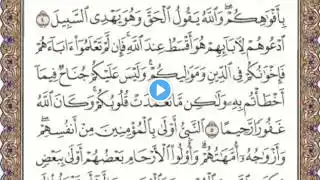 بِأَفْوَٰهِكُمْ ۖ وَٱللَّهُ يَقُولُ ٱلْحَقَّ وَهُوَ يَهْدِى ٱلسَّبِيلَ ٤
ٱدْعُوهُمْ لِـَٔابَآئِهِمْ هُوَ أَقْسَطُ عِندَ ٱللَّهِ ۚ فَإِن لَّمْ تَعْلَمُوٓا۟ ءَابَآءَهُمْ
فَإِخْوَٰنُكُمْ فِى ٱلدِّينِ وَمَوَٰلِيكُمْ ۚ وَلَيْسَ عَلَيْكُمْ جُنَاحٌ فِيمَآ
أَخْطَأْتُم بِهِۦ وَلَٰكِن مَّا تَعَمَّدَتْ قُلُوبُكُمْ ۚ وَكَانَ ٱللَّهُ
غَفُورًا رَّحِيمًا ٥ ٱلنَّبِىُّ أَوْلَىٰ بِٱلْمُؤْمِنِينَ مِنْ أَنفُسِهِمْ ۖ
وَأَزْوَٰجُهُۥٓ أُمَّهَٰتُهُمْ ۗ وَأُو۟لُوا۟ ٱلْأَرْحَامِ بَعْضُهُمْ أَوْلَىٰ بِبَعْضٍ